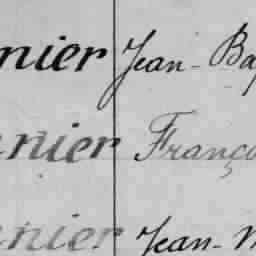 nier Jean-Bap
nier Franço
nier Jean-M